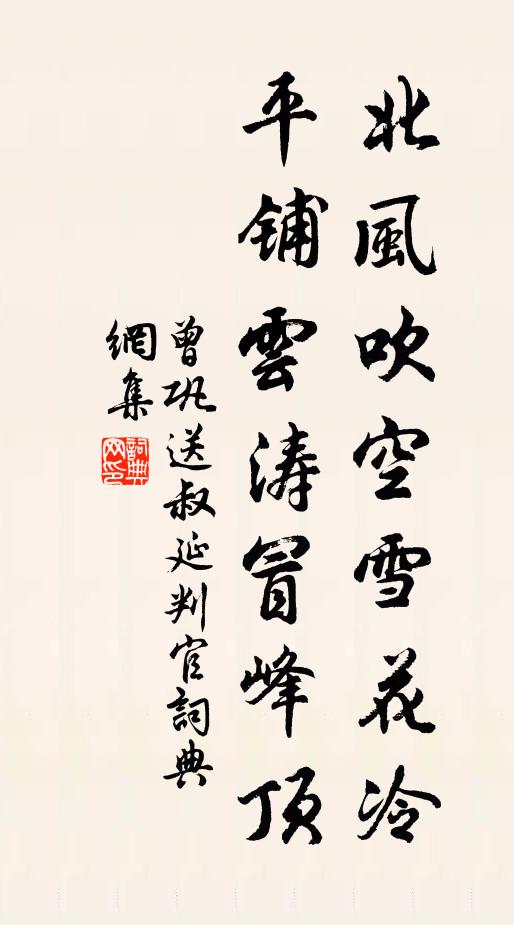 北風吹空雪花冷
平铺雲涛冒峰顶
曾巩送叔延判官詞典
網集
詞典网印